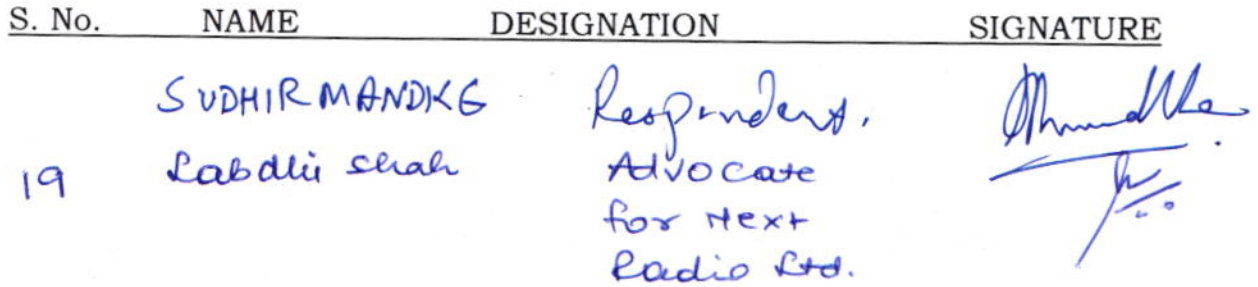 S. No. NAME DESIGNATION SIGNATURE
SUDHIR MANDKE Respondent.
19 Labdhi Shah Advocate
for Next
Radio Ltd.